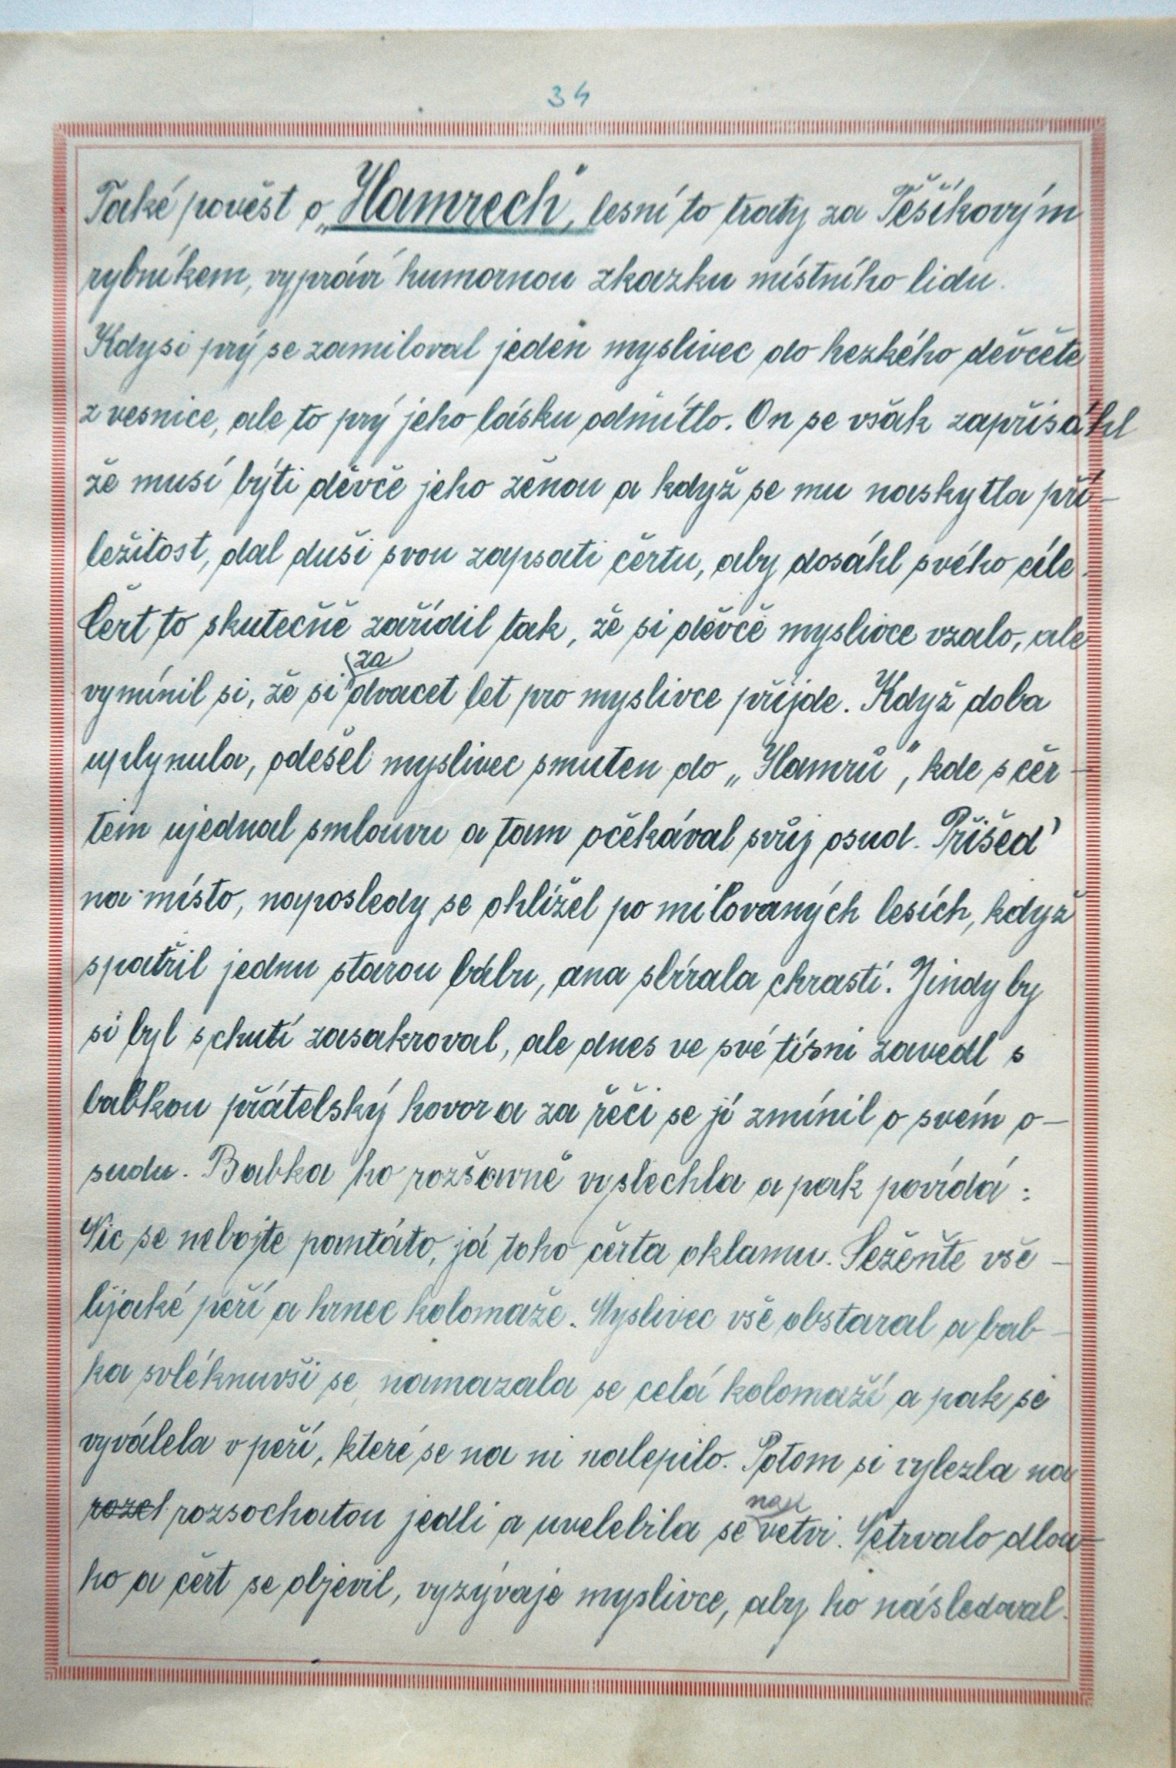 34
Také pověst o „Hamrech", lesní to traty za Těšíkovým
rybníkem, vypráví humornou zkazku místního lidu.
Kdysi prý se zamiloval jeden myslivec do hezkého děvčete
z vesnice, ale to prý jeho lásku odmítlo. On se však zapřisáhl
že musí býti děvče jeho ženou a když se mu naskytla pří-
ležitost, dal duši svou zapsati čertu, aby dosáhl svého cíle.
Čert to skutečně zařídil tak, že si děvče myslivce vzalo, ale
vymínil si, že si za dvacet let pro myslivce přijde. Když doba
uplynula, odešel myslivec smuten do „Hamrů", kde s čer-
tem ujednal smlouvu a tam očekával svůj osud. Přišed'
na místo, naposledy se ohlížel po milovaných lesích, když
spatřil jednu starou bábu, ana sbírala chrastí. Jindy by
si byl s chutí zasakroval, ale dnes ve své tísni zavedl s
babkou přátelský hovor a za řeči se jí zmínil o svém o-
sudu. Babka ho rozšavně vyslechla a pak povídá:
Nic se nebojte pantáto, já toho čerta oklamu. Sežeňte vše-
lijaké peří a hrnec kolomaže. Myslivec vše obstaral a bab-
ka svléknuvši se namazala se celá kolomaží a pak se
vyválela v peří, které se na ni nalepilo. Potom si vylezla na
rozel rozsochatou jedli a uvelebila se na větvi. Netrvalo dlou-
ho a čert se objevil, vyzývaje myslivce, aby ho následoval.